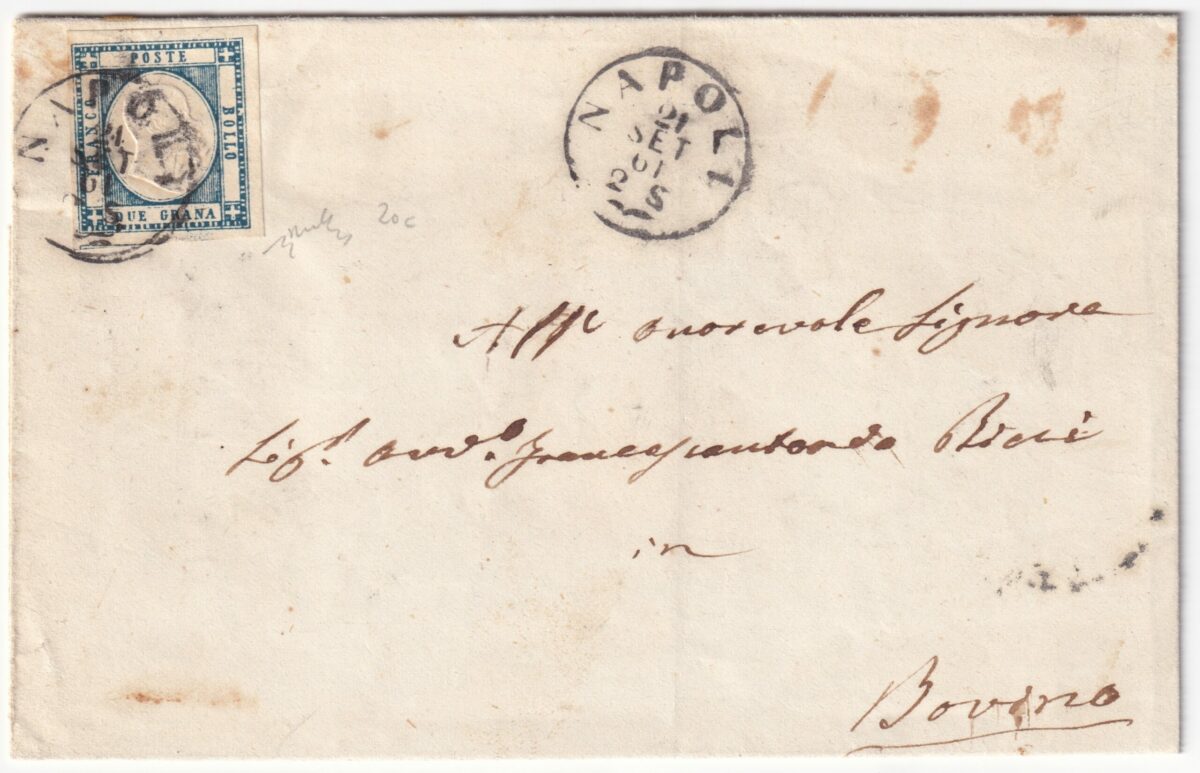 POSTE
FRANCO
BOLLO
DUE GRANA
NAPOLI
SET
S
NAPOLI
21
SET
61
2 S
20c
All' onorevole Signore
Sig.r Avv.o Francescantonio Ricci
in
Bovino